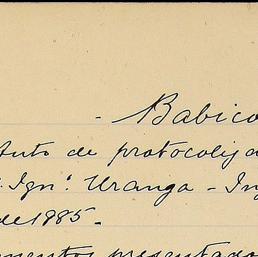 - Babico
Auto de protocoliza
Ign.ª Uranga - In
de 1885.-
mentos presentado